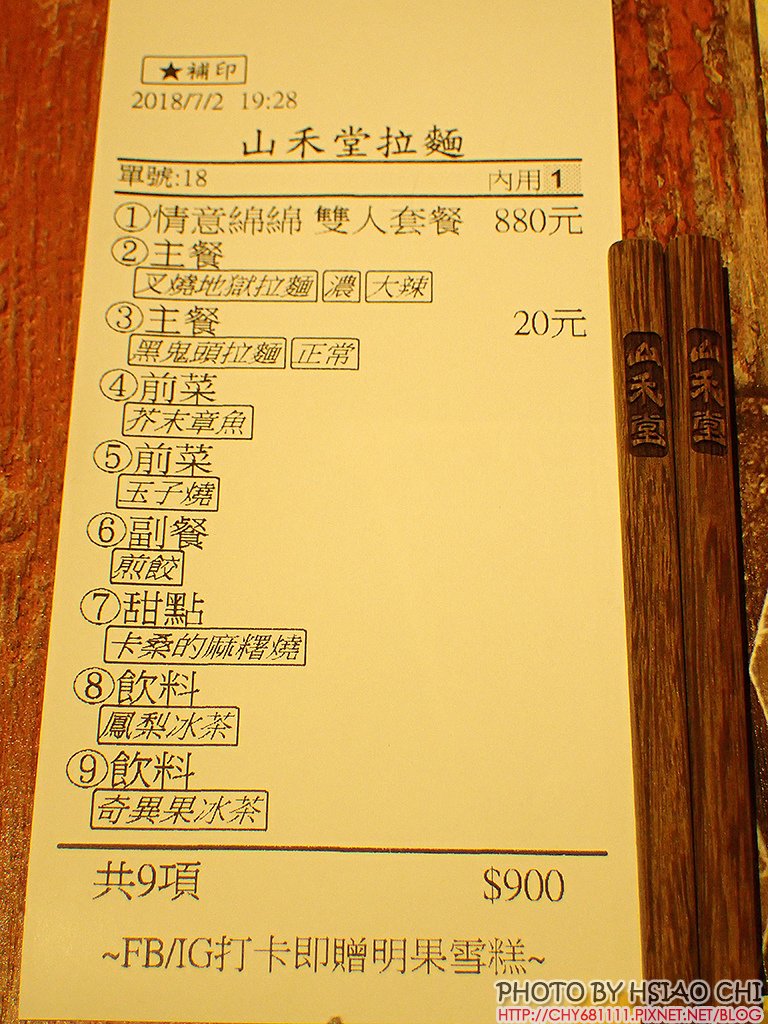 ★補印
2018/7/2 19:28
山禾堂拉麵
單號:18 內用 1
①情意綿綿 雙人套餐 880元
②主餐
叉燒地獄拉麵 濃 大辣
③主餐 20元
黑鬼頭拉麵 正常
④前菜
芥末章魚
⑤前菜
玉子燒
⑥副餐
煎餃
⑦甜點
卡桑的麻糬燒
⑧飲料
鳳梨冰茶
⑨飲料
奇異果冰茶
共9項 $900
~FB/IG打卡即贈明果雪糕~
山禾堂
山禾堂
PHOTO BY HSIAO CHI
HTTP://CHY681111.PIXNET.NET/BLOG